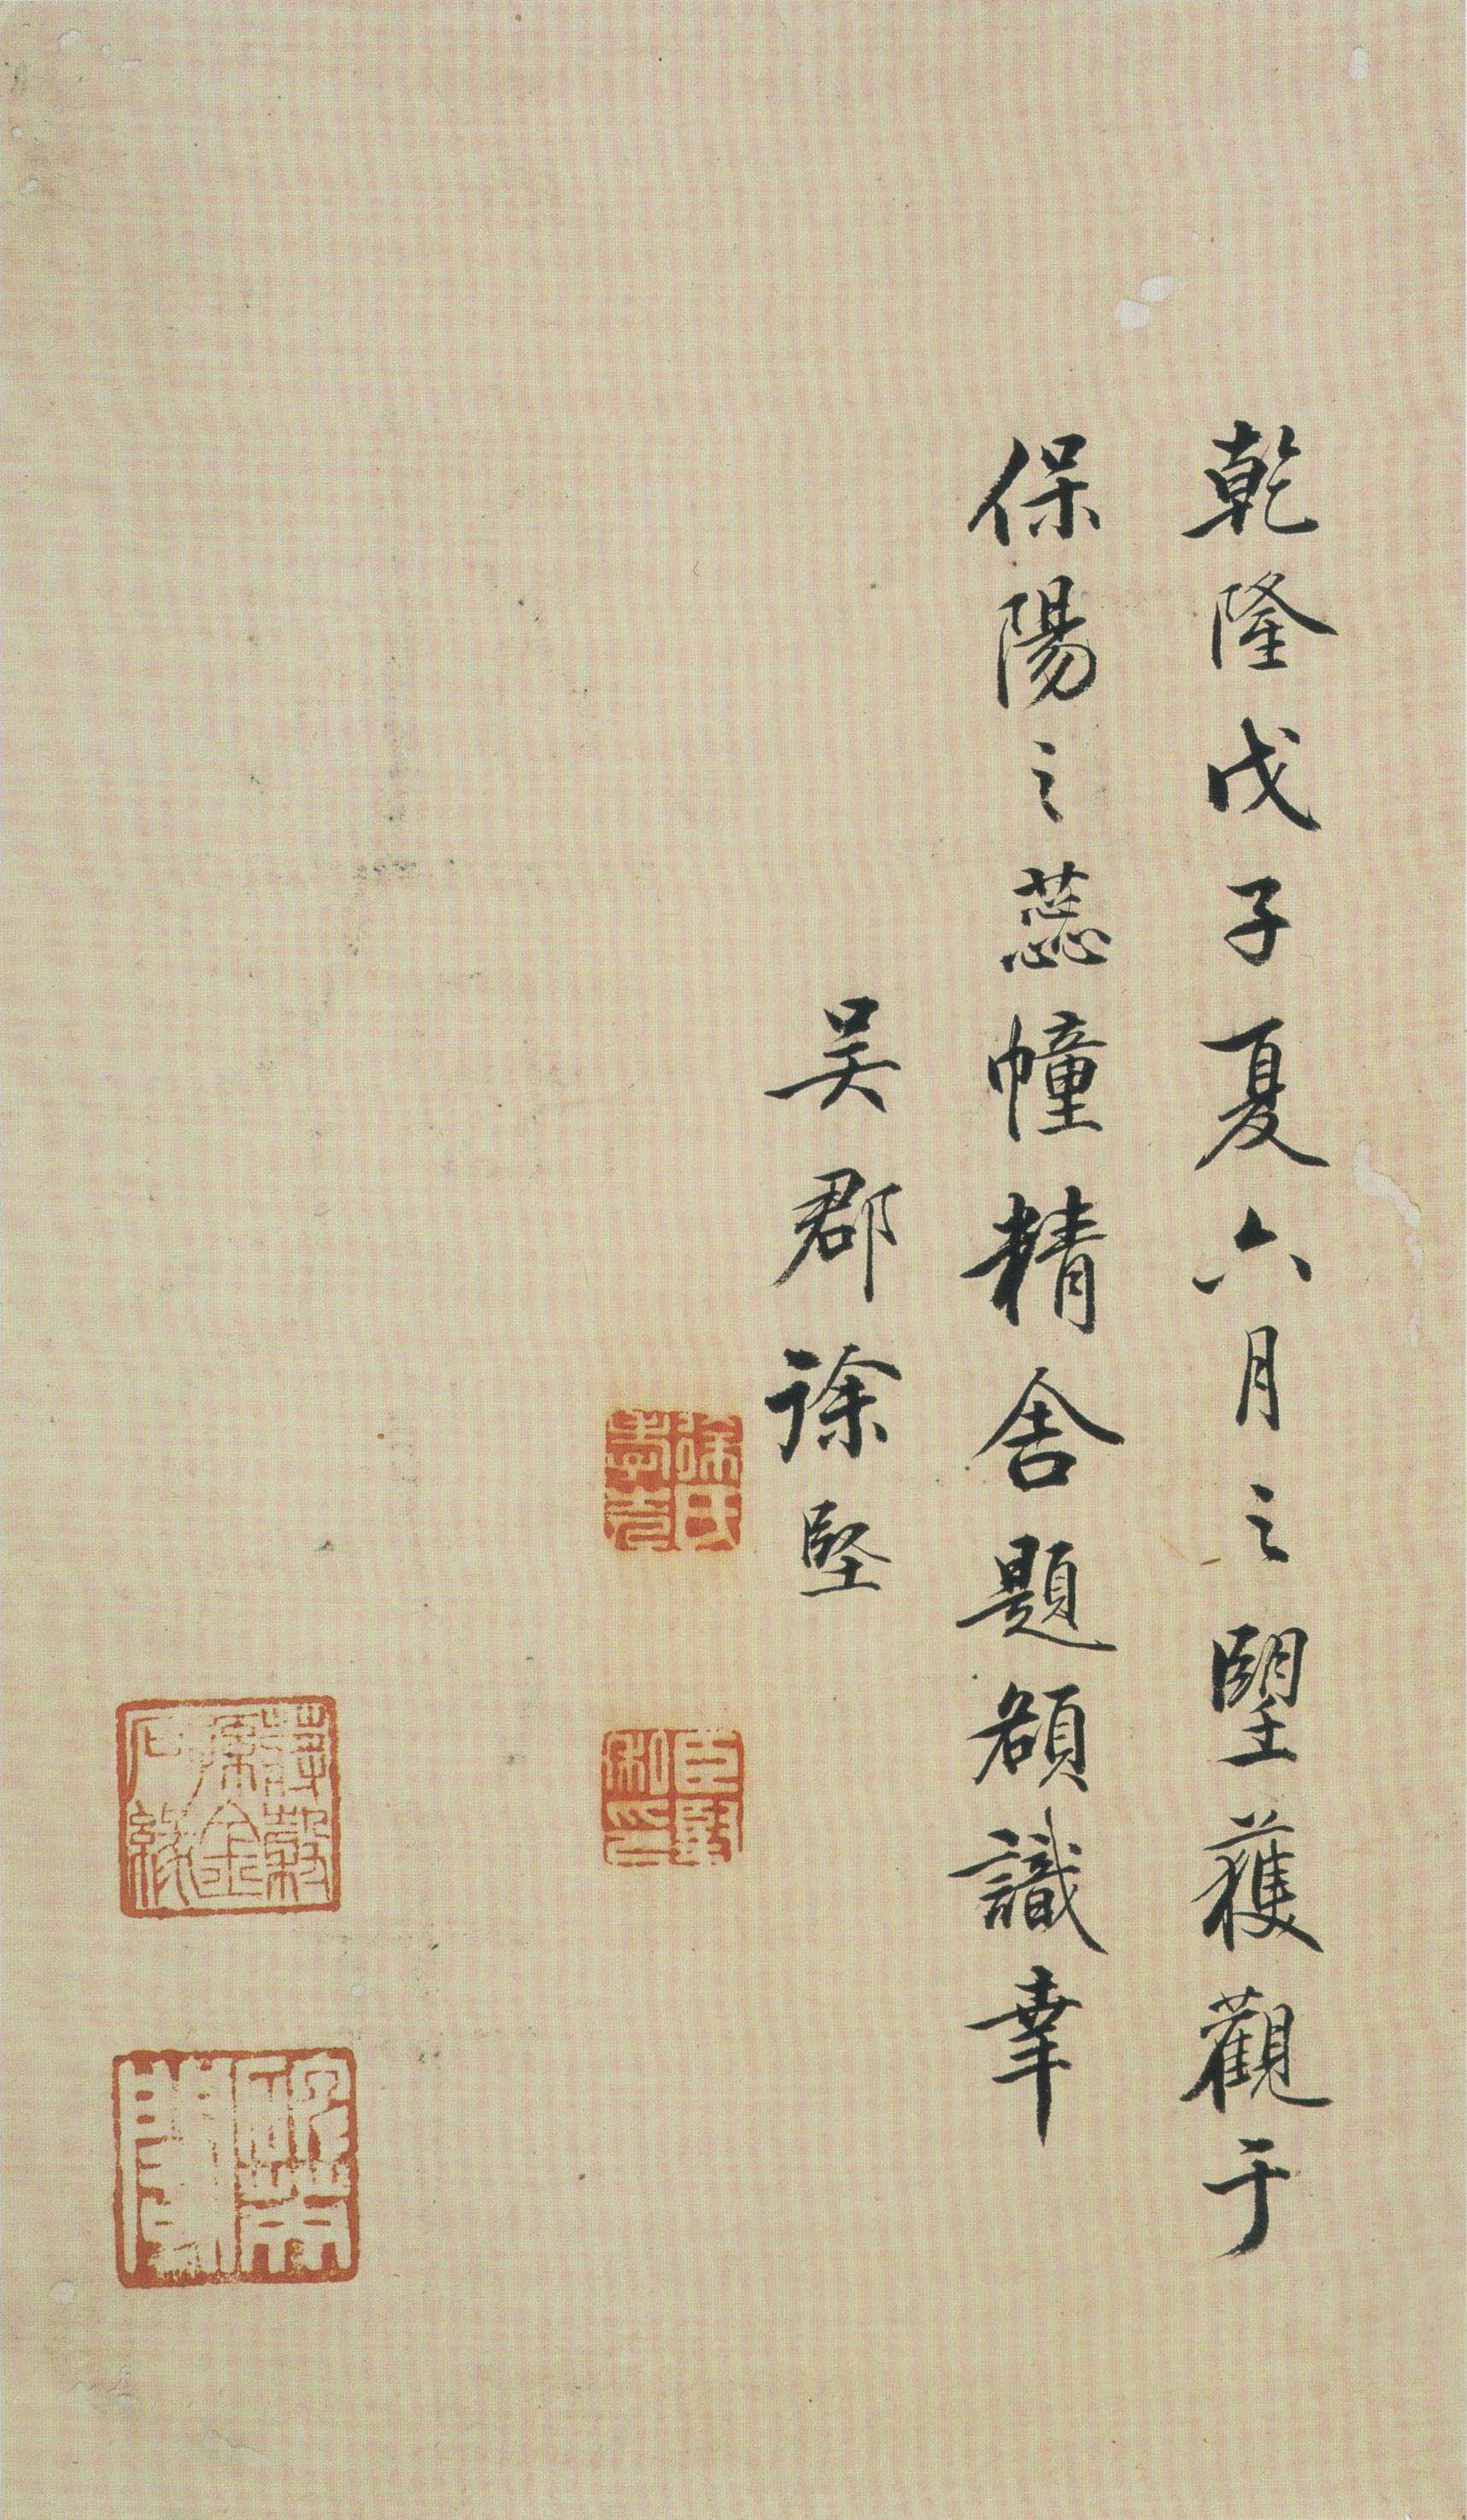 乾隆戊子夏六月之朢獲觀于
保陽之蕊幢精舍題額識幸
吴郡徐堅
徐氏孝先
臣堅私印